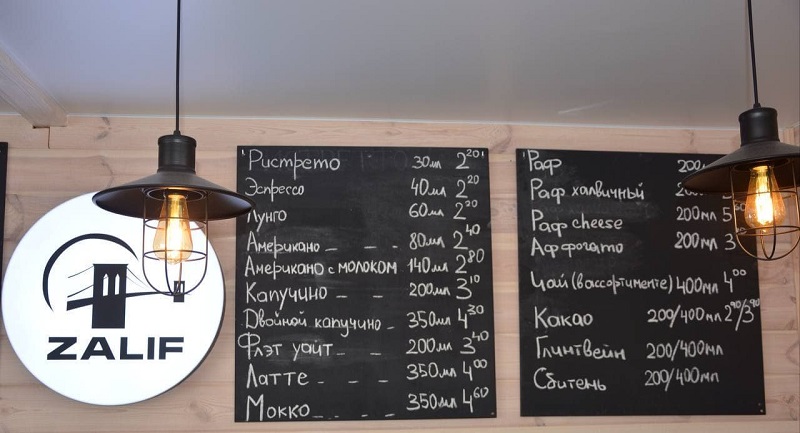 ZALIF
Ристрето 30мл 2²⁰
Эспрессо 40мл 2²⁰
Лунго 60мл 2²⁰
Американо _ _ _ 80мл 2⁴⁰
Американо с молоком 140мл 2⁸⁰
Капучино _ _ 200мл 3¹⁰
Двойной капучино _ 350мл 4³⁰
Флэт уайт _ _ 200мл 3⁴⁰
Латте _ _ _ 350мл 4⁰⁰
Мокко _ _ _ _ 350мл 4⁶⁰
Раф 200мл
Раф халвичный 200мл
Раф cheese 200мл
Аффогато 200мл
Чай (в ассортименте) 400мл 4⁰⁰
Какао 200/400мл 2⁹⁰/3⁹⁰
Глинтвейн 200/400мл
Сбитень 200/400мл